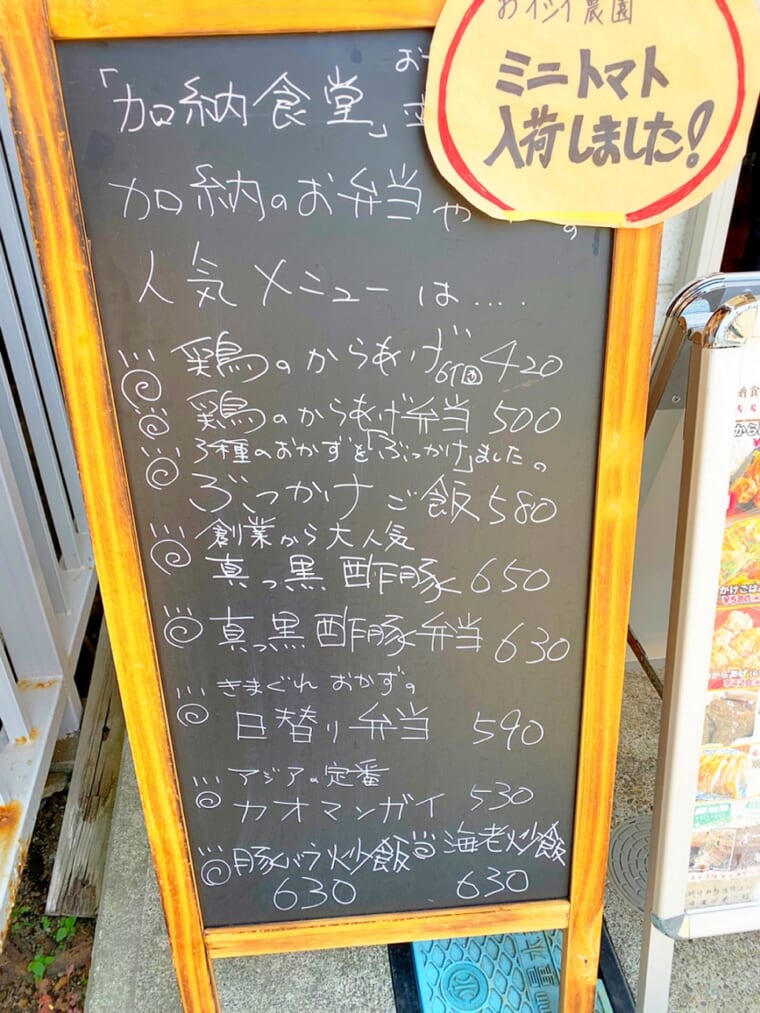 おイシイ農園
ミニトマト
入荷しました!
お
「加納食堂」
加納のお弁当や
の
人気メニューは....
鶏のからあげ6個 420
鶏のからあげ弁当 500
3種のおかずを「ぶっかけ」ました。
ぶっかけご飯 580
創業から大人気
真っ黒酢豚 650
真っ黒酢豚弁当 630
きまぐれおかずの
日替り弁当 590
アジアの定番
カオマンガイ 530
豚バラ炒飯 海老炒飯
630 630
¥580
¥420